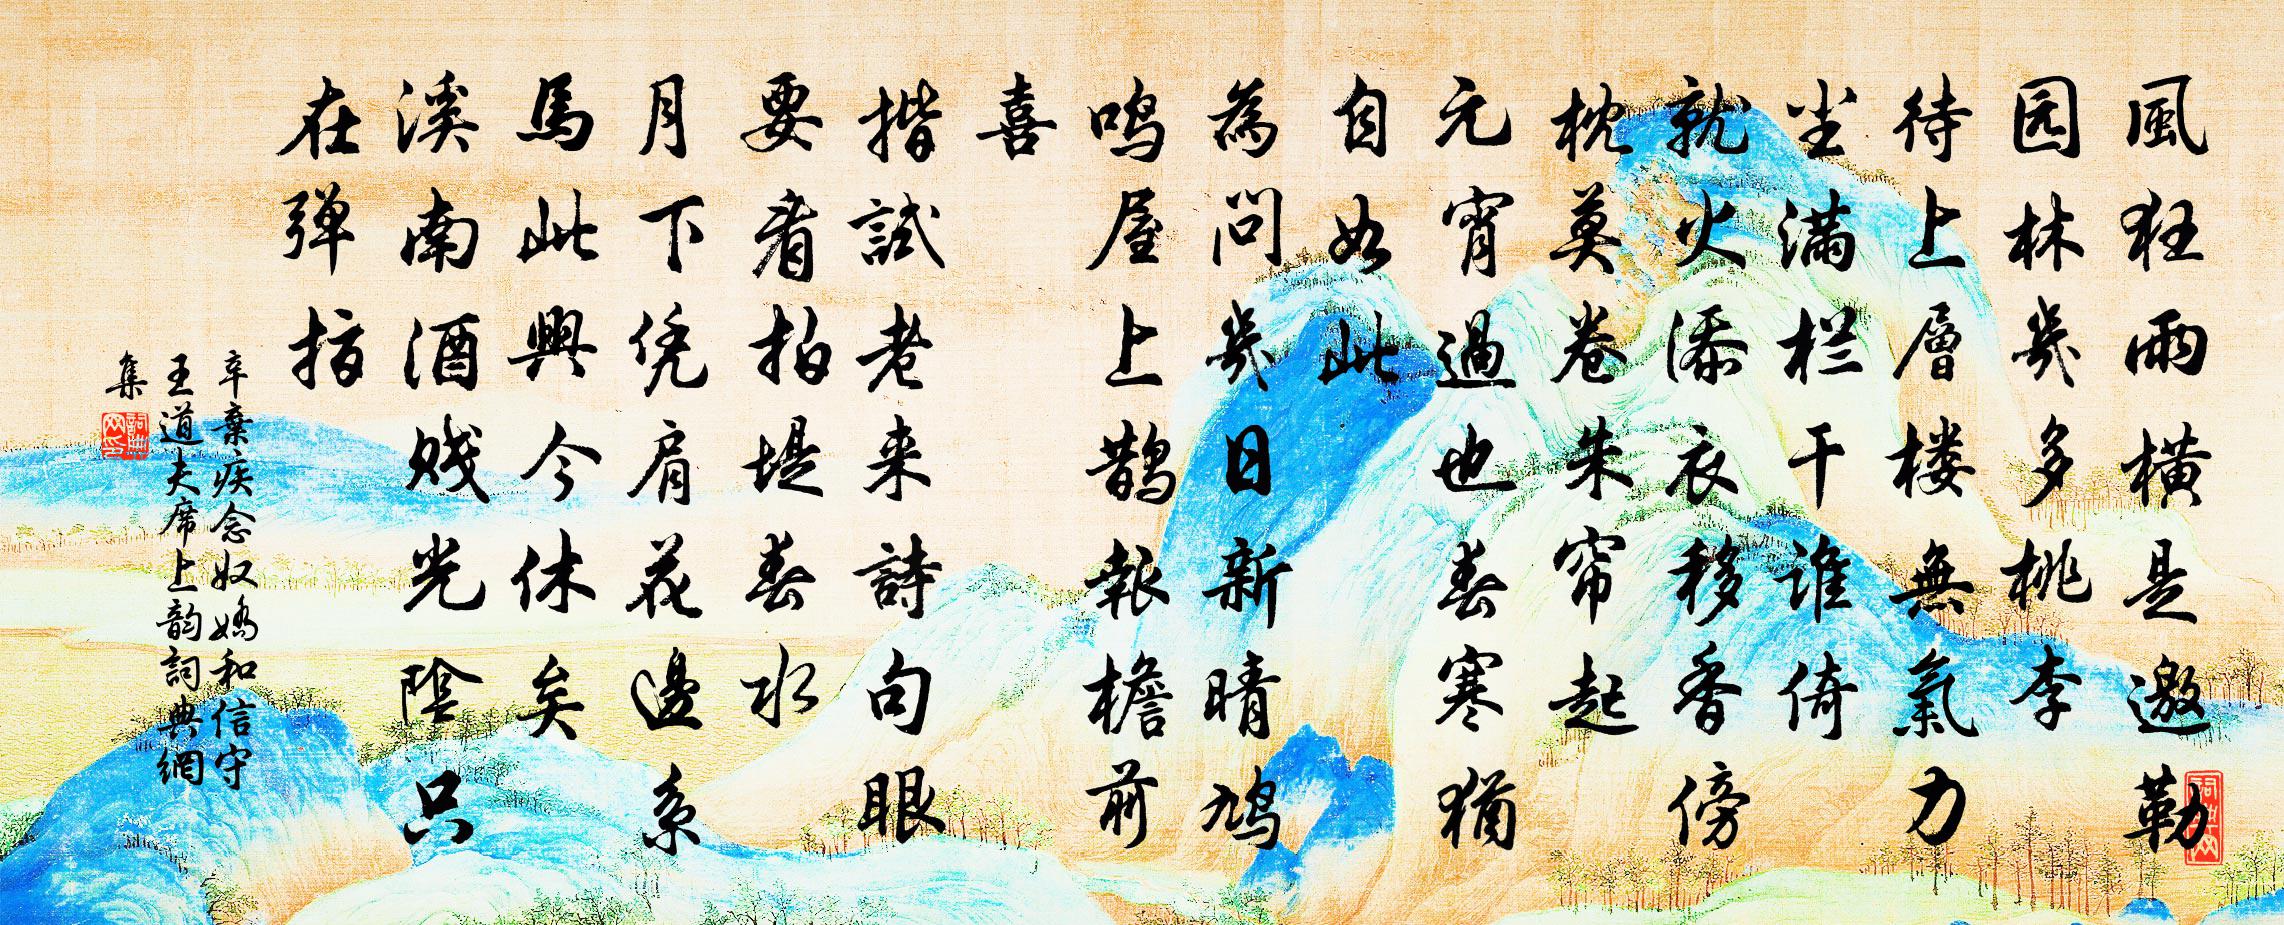 風狂雨橫是邀勒
园林幾多桃李
待上層楼無氣力
尘滿栏干谁倚
就火添衣移香傍
枕莫卷朱帘起
元宵過也春寒猶
自如此
為问幾日新晴鸠
鸣屋上鹊報檐前
喜
揩試老来詩句眼
要看拍堤春水
月下凭肩花邊系
馬此興今休矣
溪南酒贱光陰只
在弹指
辛棄疾念奴嬌和信守
王道夫席上韵詞典網
集